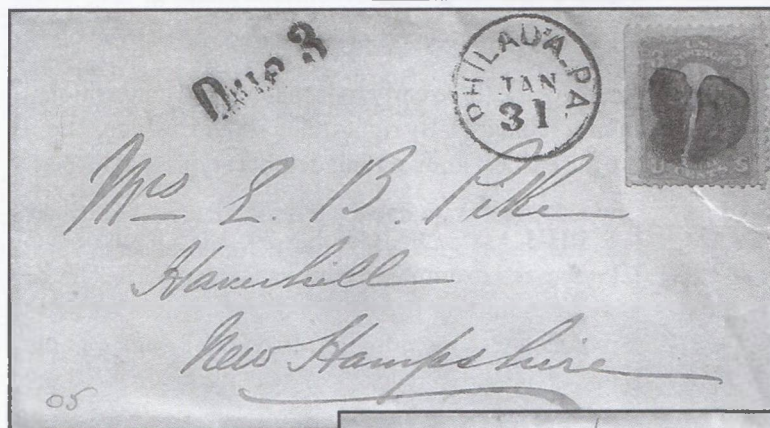 Due 3
PHILAD'A. PA.
JAN
31
Mrs E. B. Pike
Haverhill
New Hampshire
05